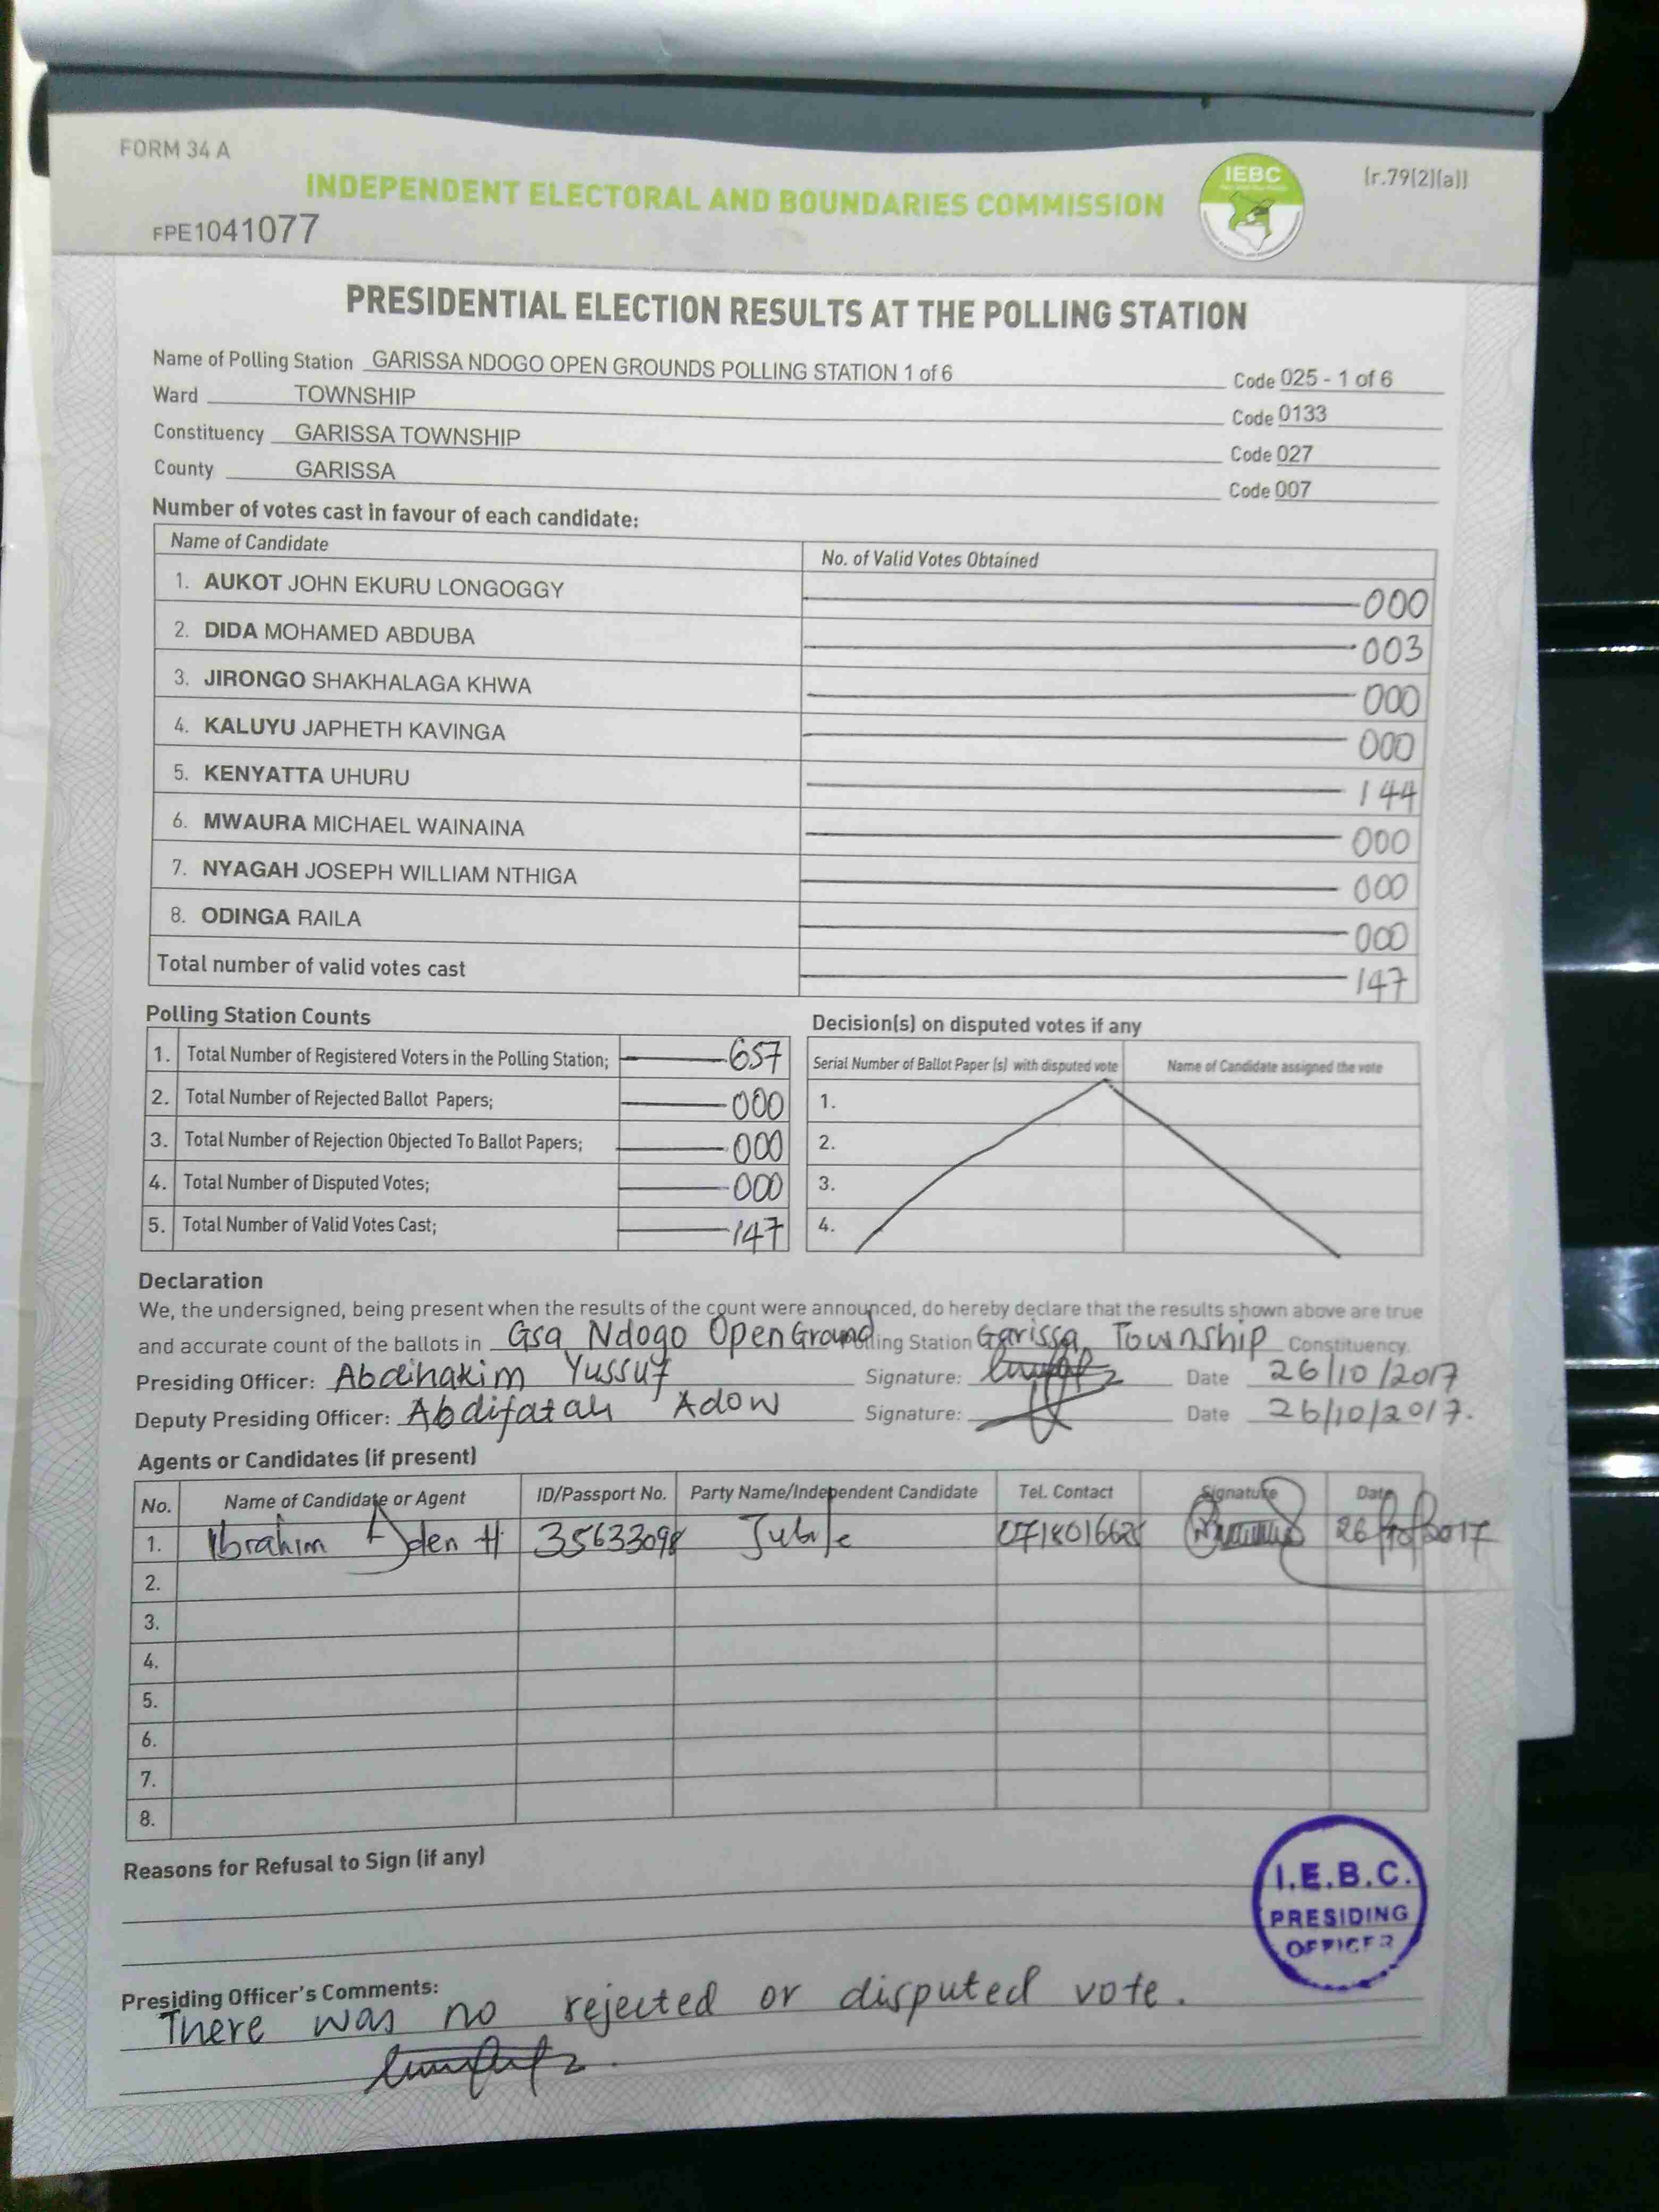 FORM 34 A
(r.79(2)(a))
IEBC
INDEPENDENT ELECTORAL AND BOUNDARIES COMMISSION
FPE1041077
PRESIDENTIAL ELECTION RESULTS AT THE POLLING STATION
Name of Polling Station GARISSA NDOGO OPEN GROUNDS POLLING STATION 1 of 6 Code 025 - 1 of 6
Ward TOWNSHIP Code 0133
Constituency GARISSA TOWNSHIP Code 027
County GARISSA Code 007
Number of votes cast in favour of each candidate:
Name of Candidate No. of Valid Votes Obtained
1. AUKOT JOHN EKURU LONGOGGY 000
2. DIDA MOHAMED ABDUBA 003
3. JIRONGO SHAKHALAGA KHWA 000
4. KALUYU JAPHETH KAVINGA 000
5. KENYATTA UHURU 144
6. MWAURA MICHAEL WAINAINA 000
7. NYAGAH JOSEPH WILLIAM NTHIGA 000
8. ODINGA RAILA 000
Total number of valid votes cast 147
Polling Station Counts
1. Total Number of Registered Voters in the Polling Station; 657
2. Total Number of Rejected Ballot Papers; 000
3. Total Number of Rejection Objected To Ballot Papers; 000
4. Total Number of Disputed Votes; 000
5. Total Number of Valid Votes Cast; 147
Decision(s) on disputed votes if any
Serial Number of Ballot Paper (s) with disputed vote Name of Candidate assigned the vote
1.
2.
3.
4.
Declaration
We, the undersigned, being present when the results of the count were announced, do hereby declare that the results shown above are true
and accurate count of the ballots in Gsa Ndogo Open Ground Polling Station Garissa Township Constituency.
Presiding Officer: Abdihakim Yussuf Signature: Date 26/10/2017
Deputy Presiding Officer: Abdifatah Adow Signature: Date 26/10/2017.
Agents or Candidates (if present)
No. Name of Candidate or Agent ID/Passport No. Party Name/Independent Candidate Tel. Contact Signature Date
1. Ibrahim Aden H 35633098 Jubile 26/10/2017
2.
3.
4.
5.
6.
7.
8.
Reasons for Refusal to Sign (if any)
I.E.B.C.
PRESIDING
OFFICER
Presiding Officer's Comments:
There was no rejected or disputed vote.